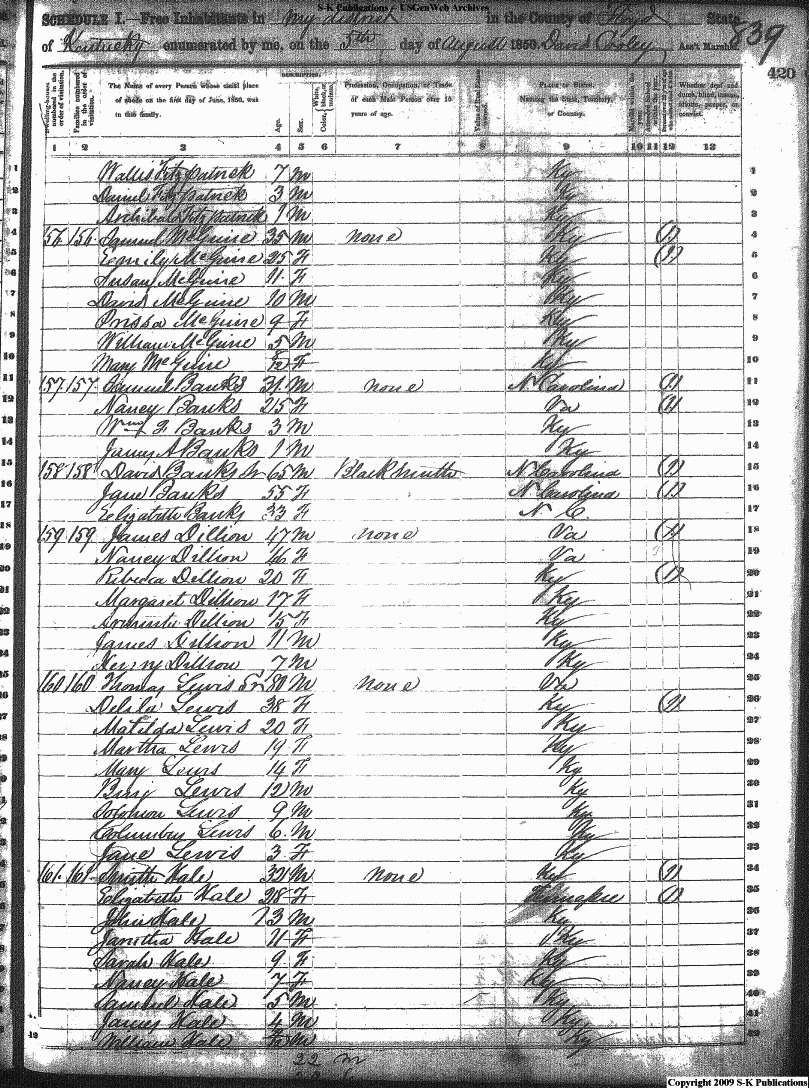 S-K Publications - USGenWeb Archives
SCHEDULE I.—Free Inhabitants in My district in the County of Floyd State
of Kentucky enumerated by me, on the 5th day of August 1850. David Cooley Ass't Marshal.
839
420
DESCRIPTION.
Dwelling-houses numbered in the order of visitation. Families numbered in the order of visitation. The Name of every Person whose usual place of abode on the first day of June, 1850, was in this family. Age. Sex. White, black, or mulatto. Color, Profession, Occupation, or Trade of each Male Person over 15 years of age. Value of Real Estate PLACE OF BIRTH. Naming the State, Territory, or Country. Married within the year. Attended School within the year. Whether deaf and dumb, blind, insane, idiotic, pauper, or convict.
1 2 3 4 5 6 7 8 9 10 11 12 13
1 Wallis Fitzpatrick 7 M Ky 1
2 Daniel Fitzpatrick 3 M Ky 2
3 Archibald Fitzpatrick 1 M Ky 3
4 156 156 Samuel McGuire 35 M none Ky (1) 4
5 Eemily McGuire 25 F Ky (1) 5
6 Susan McGuire 11 F Ky 6
7 David McGuire 10 M Ky 7
8 Orissa McGuire 9 F Ky 8
9 William McGuire 5 M Ky 9
10 Mary McGuire /12 F Ky 10
11 157 157 Samuel Banks 31 M none N Carolina (1) 11
12 Nancy Banks 25 F Va (1) 12
13 Wm Banks 3 M Ky 13
14 James A Banks 1 M Ky 14
15 158 158 David Banks Sr 65 M Blacksmith N Carolina (1) 15
16 Jane Banks 55 F N Carolina (1) 16
17 Eelizabeth Banks 33 F N C. 17
18 159 159 James Dillion 47 M none Va (1) 18
19 Nancy Dillion 46 F Va 19
20 Rebecca Dillion 20 F Ky (1) 20
21 Margaret Dillion 17 F Ky 21
22 Dillion 15 F Ky 22
23 James Dillion 11 M Ky 23
24 Henry Dillion 7 M Ky 24
25 160 160 Thomas Lewis Sr 80 M none Va 25
26 Delila Lewis 38 F Ky (1) 26
27 Matilda Lewis 20 F Ky 27
28 Martha Lewis 19 F Ky 28
29 Mary Lewis 14 F Ky 29
30 Lewis 12 M Ky 30
31 Solomon Lewis 9 M Ky 31
32 Columbus Lewis 6 M Ky 32
33 Jane Lewis 3 F Ky 33
34 161 161 Smith Hale 32 M none Ky (1) 34
35 Elizabeth Hale 28 F Tennessee (1) 35
36 John Hale 13 M Ky 36
37 Hale 11 F Ky 37
38 Sarah Hale 9 F Ky 38
39 Nancy Hale 7 F Ky 39
40 Samuel Hale 5 M Ky 40
41 James Hale 4 M Ky 41
42 William Hale /12 M Ky 42
22 M
Copyright 2009 S-K Publications